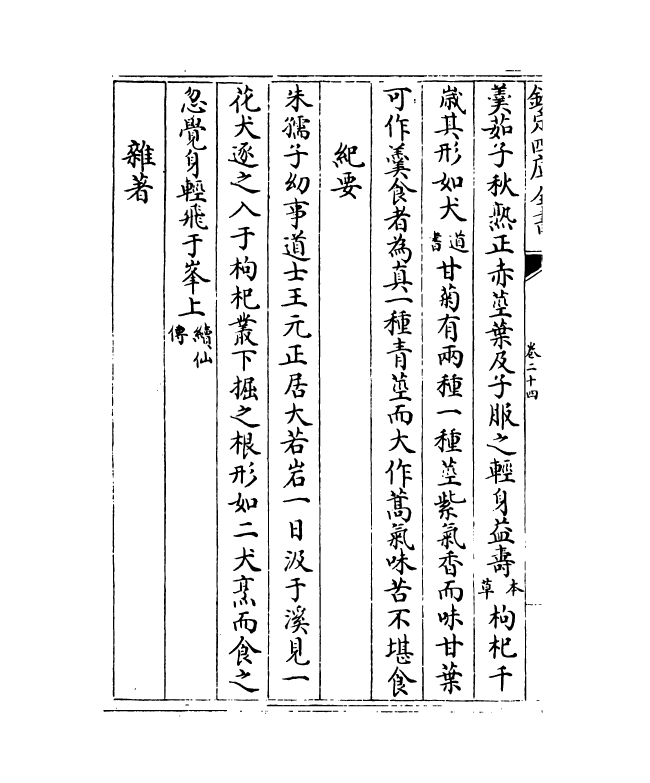 欽定四庫全書
卷二十四
羮茹子秋熟正赤莖葉及子服之輕身益壽本草枸杞千
歲其形如犬道書甘菊有兩種一種莖紫氣香而味甘葉
可作羹食者為真一種青莖而大作蒿氣味苦不堪食
紀要
朱孺子幼事道士王元正居大若岩一日汲于溪見一
花犬逐之入于枸杞叢下掘之根形如二犬烹而食之
忽覺身輕飛于峯上續仙傳
雜著